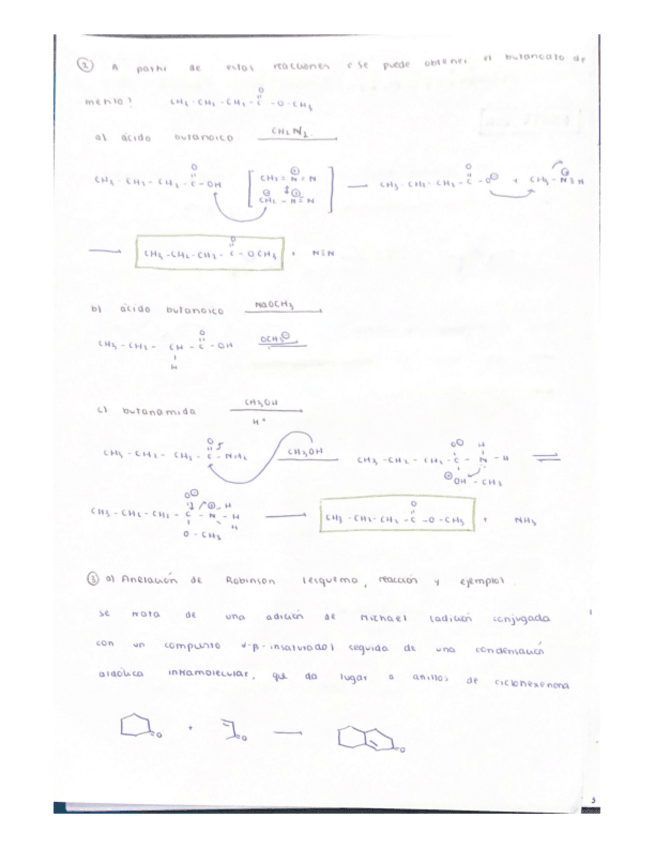 ② A partir de estas reacciones ¿se puede obtener el butanoato de
metilo? CH₃-CH₂-CH₂-C-O-CH₃
O
a) ácido butanoico CH₂N₂
CH₃-CH₂-CH₂-C-OH
O
CH₂=N=N
CH₂-N≡N
CH₃-CH₂-CH₂-C-O⊖ + CH₃-N≡N
O
CH₃-CH₂-CH₂-C-OCH₃ + N≡N
O
b) ácido butanoico NaOCH₃
CH₃-CH₂-CH-C-OH OCH₃⊖
O
H
c) butanamida CH₃OH
H⁺
CH₃-CH₂-CH₂-C-NH₂ CH₃OH CH₃-CH₂-CH₂-C-N-H
O
OH-CH₃
CH₃-CH₂-CH₂-C-N-H CH₃-CH₂-CH₂-C-O-CH₃ + NH₃
O-CH₃
③ a) Anelación de Robinson (esquema, reacción y ejemplo).
Se trata de una adición de Michael (adición conjugada
con un compuesto α-β-insaturado) seguida de una condensación
aldólica intramolecular, que da lugar a anillos de ciclohexenona
=O + =O =O
3